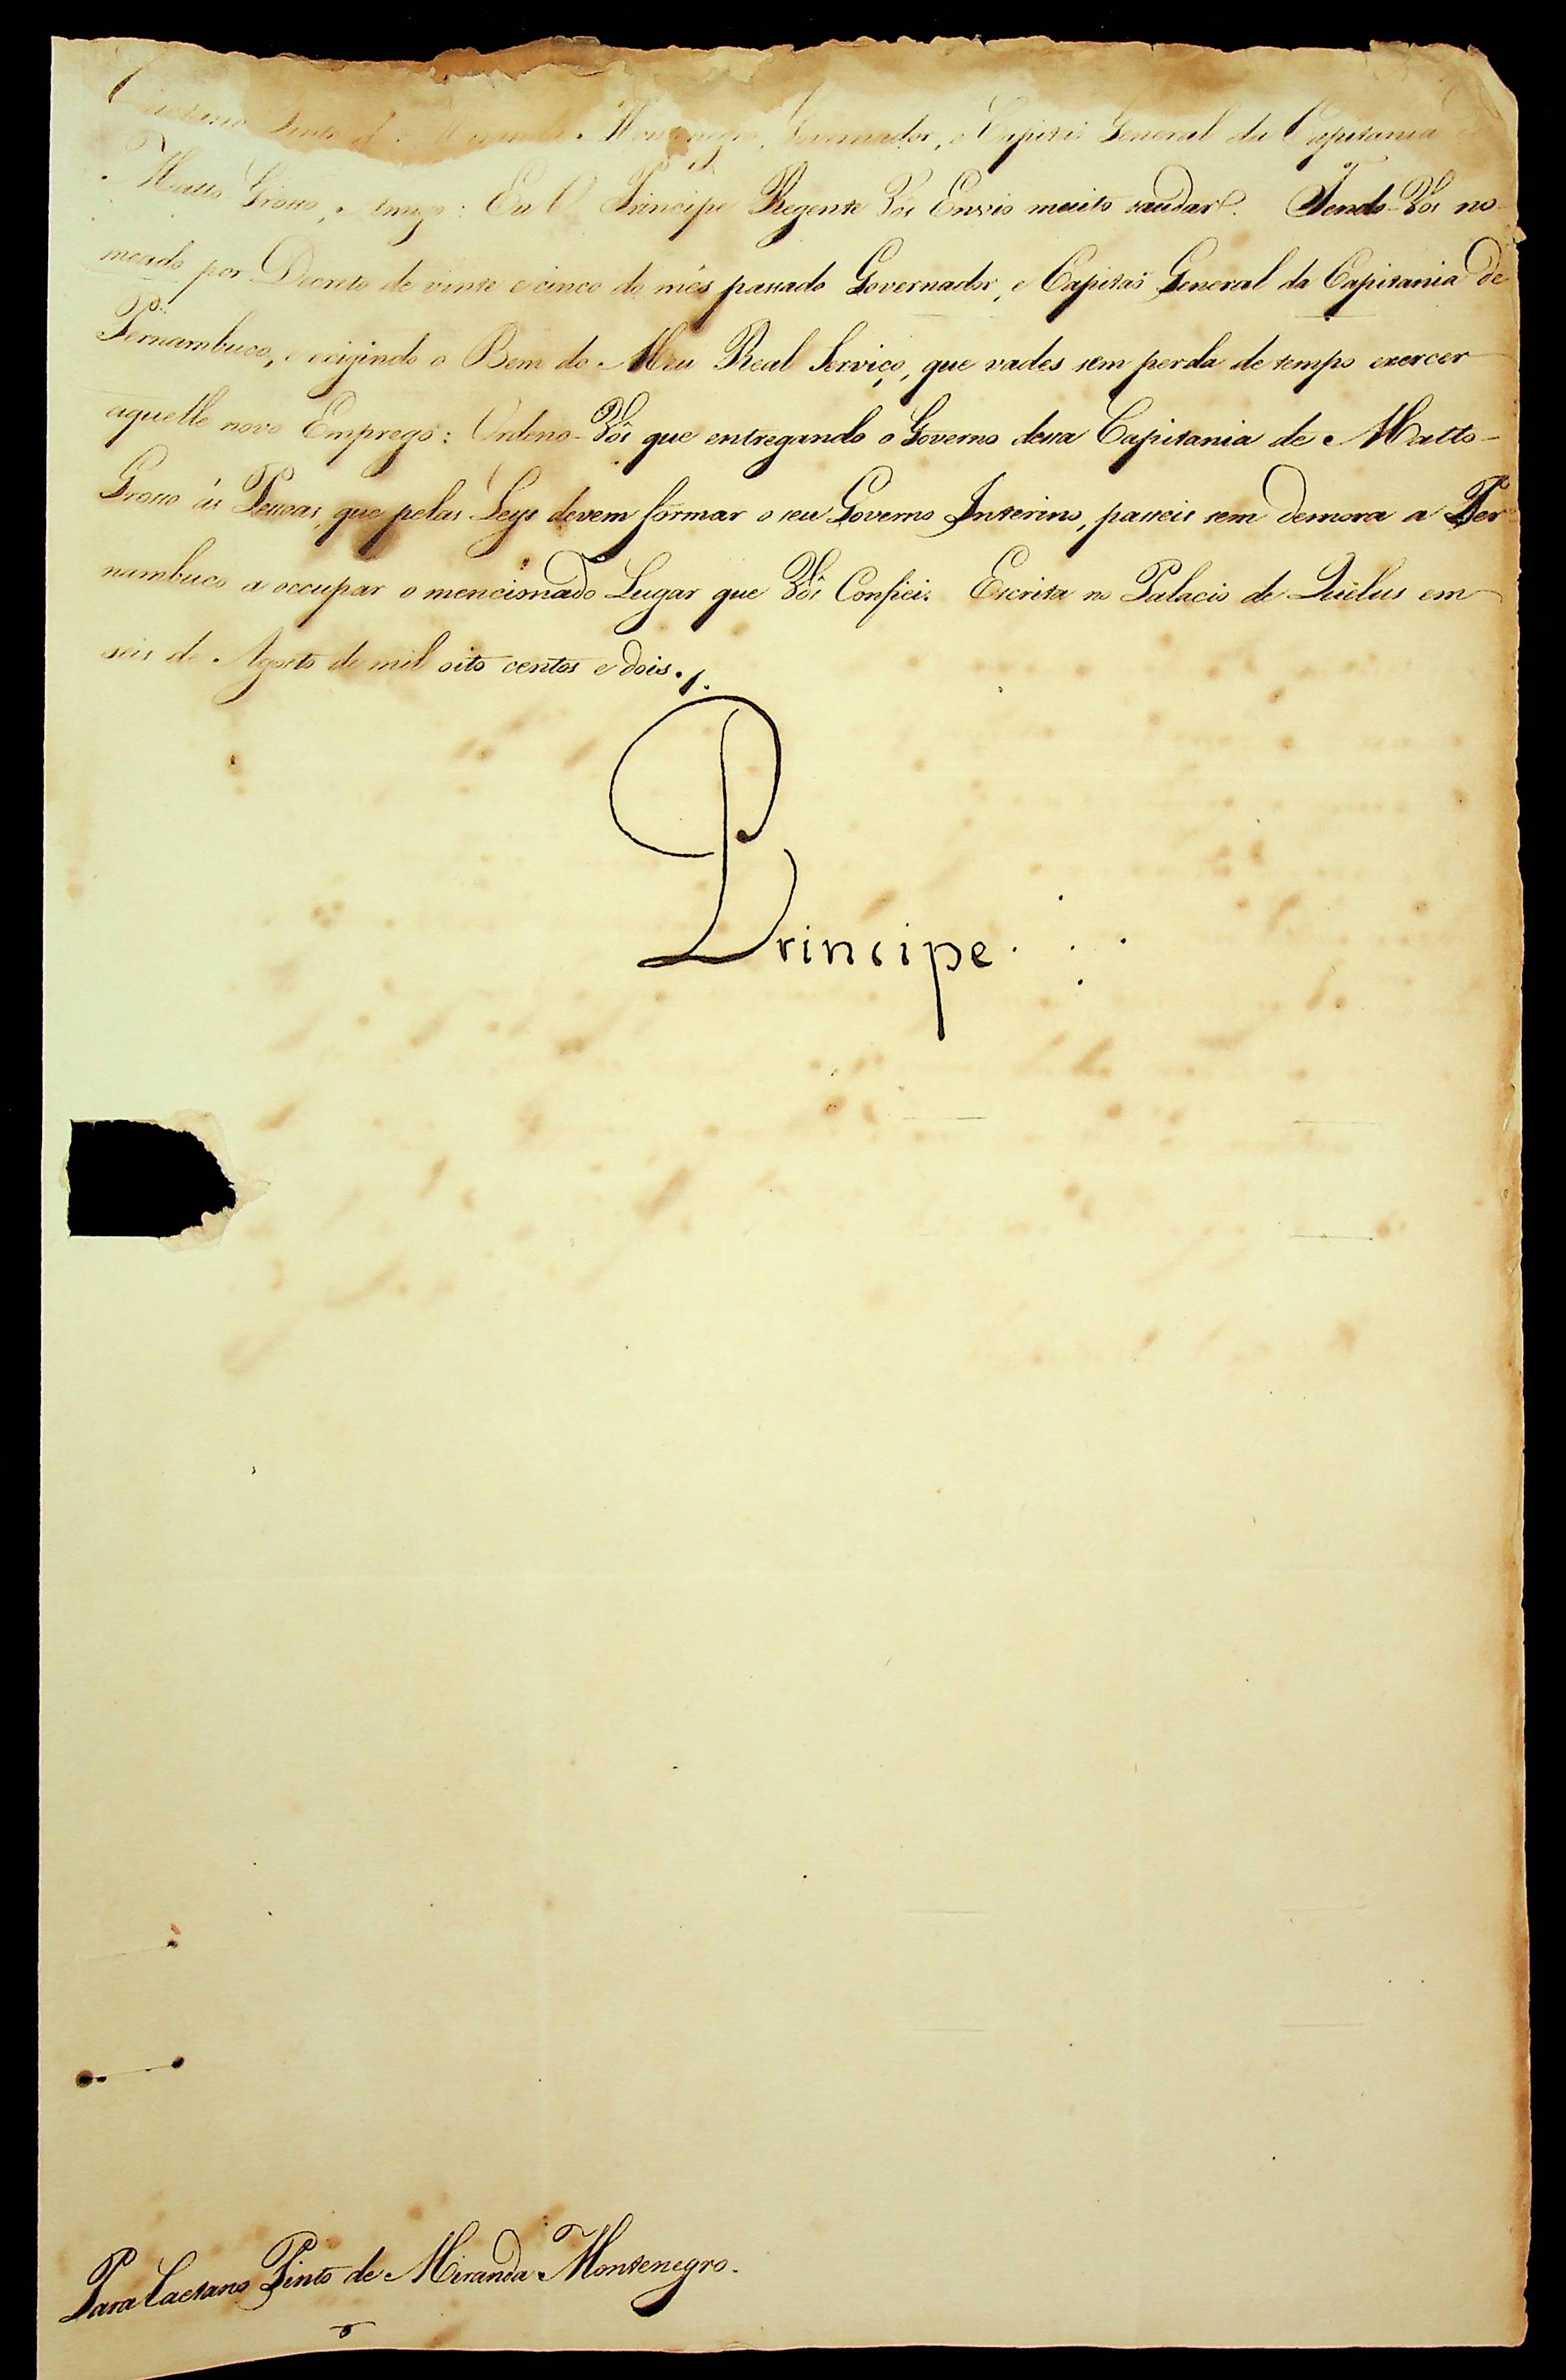 Caetano Pinto de Miranda Montenegro, Governador, e Capitaõ General da Capitania de
Matto Grosso, Amigo: Eu O Principe Regente Vos Envio muito saudar. Tendo-Vos no-
meado por Decreto de vinte e cinco do mês passado Governador, e Capitaõ General da Capitania de
Pernambuco, e exigindo o Bem do Meu Real Serviço, que vades sem perda de tempo exercer
aquelle novo Emprego: Ordeno-Vos que entregando o Governo dessa Capitania de Matto-
Grosso ás Pessoas, que pelas Leys devem formar o seu Governo Interino, passeis sem demora a Per
nambuco a occupar o mencionado Lugar que Vos Confiei. Escrita no Palacio de Quélus em
seis de Agosto de mil oito centos e dois./.
Principe
Para Caetano Pinto de Miranda Montenegro.